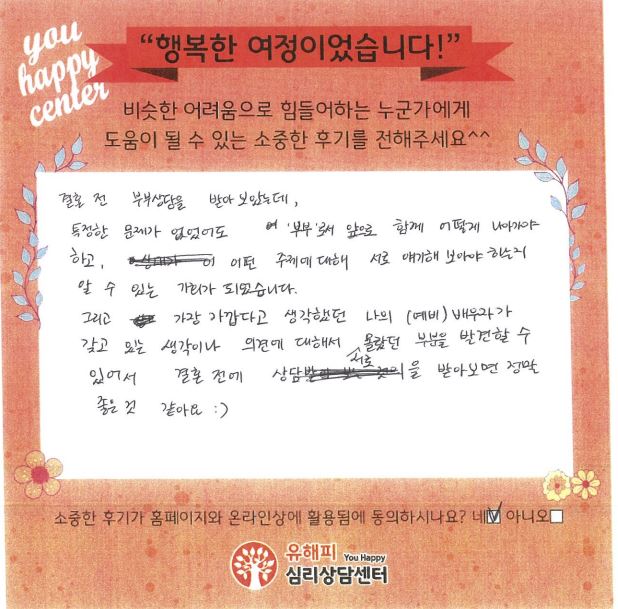 you
happy
center
“행복한 여정이었습니다!”
비슷한 어려움으로 힘들어하는 누군가에게
도움이 될 수 있는 소중한 후기를 전해주세요^^
결혼 전 부부상담을 받아 보았는데,
특정한 문제가 없었어도 '부부'로서 앞으로 함께 어떻게 나아가야
하고, 이 어떤 주제에 대해 서로 얘기해 보아야 하는지
알 수 있는 자리가 되었습니다.
그리고 가장 가깝다고 생각했던 나의 (예비) 배우자가
갖고 있는 생각이나 의견에 대해서 서로 몰랐던 부분을 발견할 수
있어서 결혼 전에 상담을 받아보면 정말
좋은 것 같아요 :)
소중한 후기가 홈페이지와 온라인상에 활용됨에 동의하시나요? 네☑ 아니오□
유해피 You Happy
심리상담센터